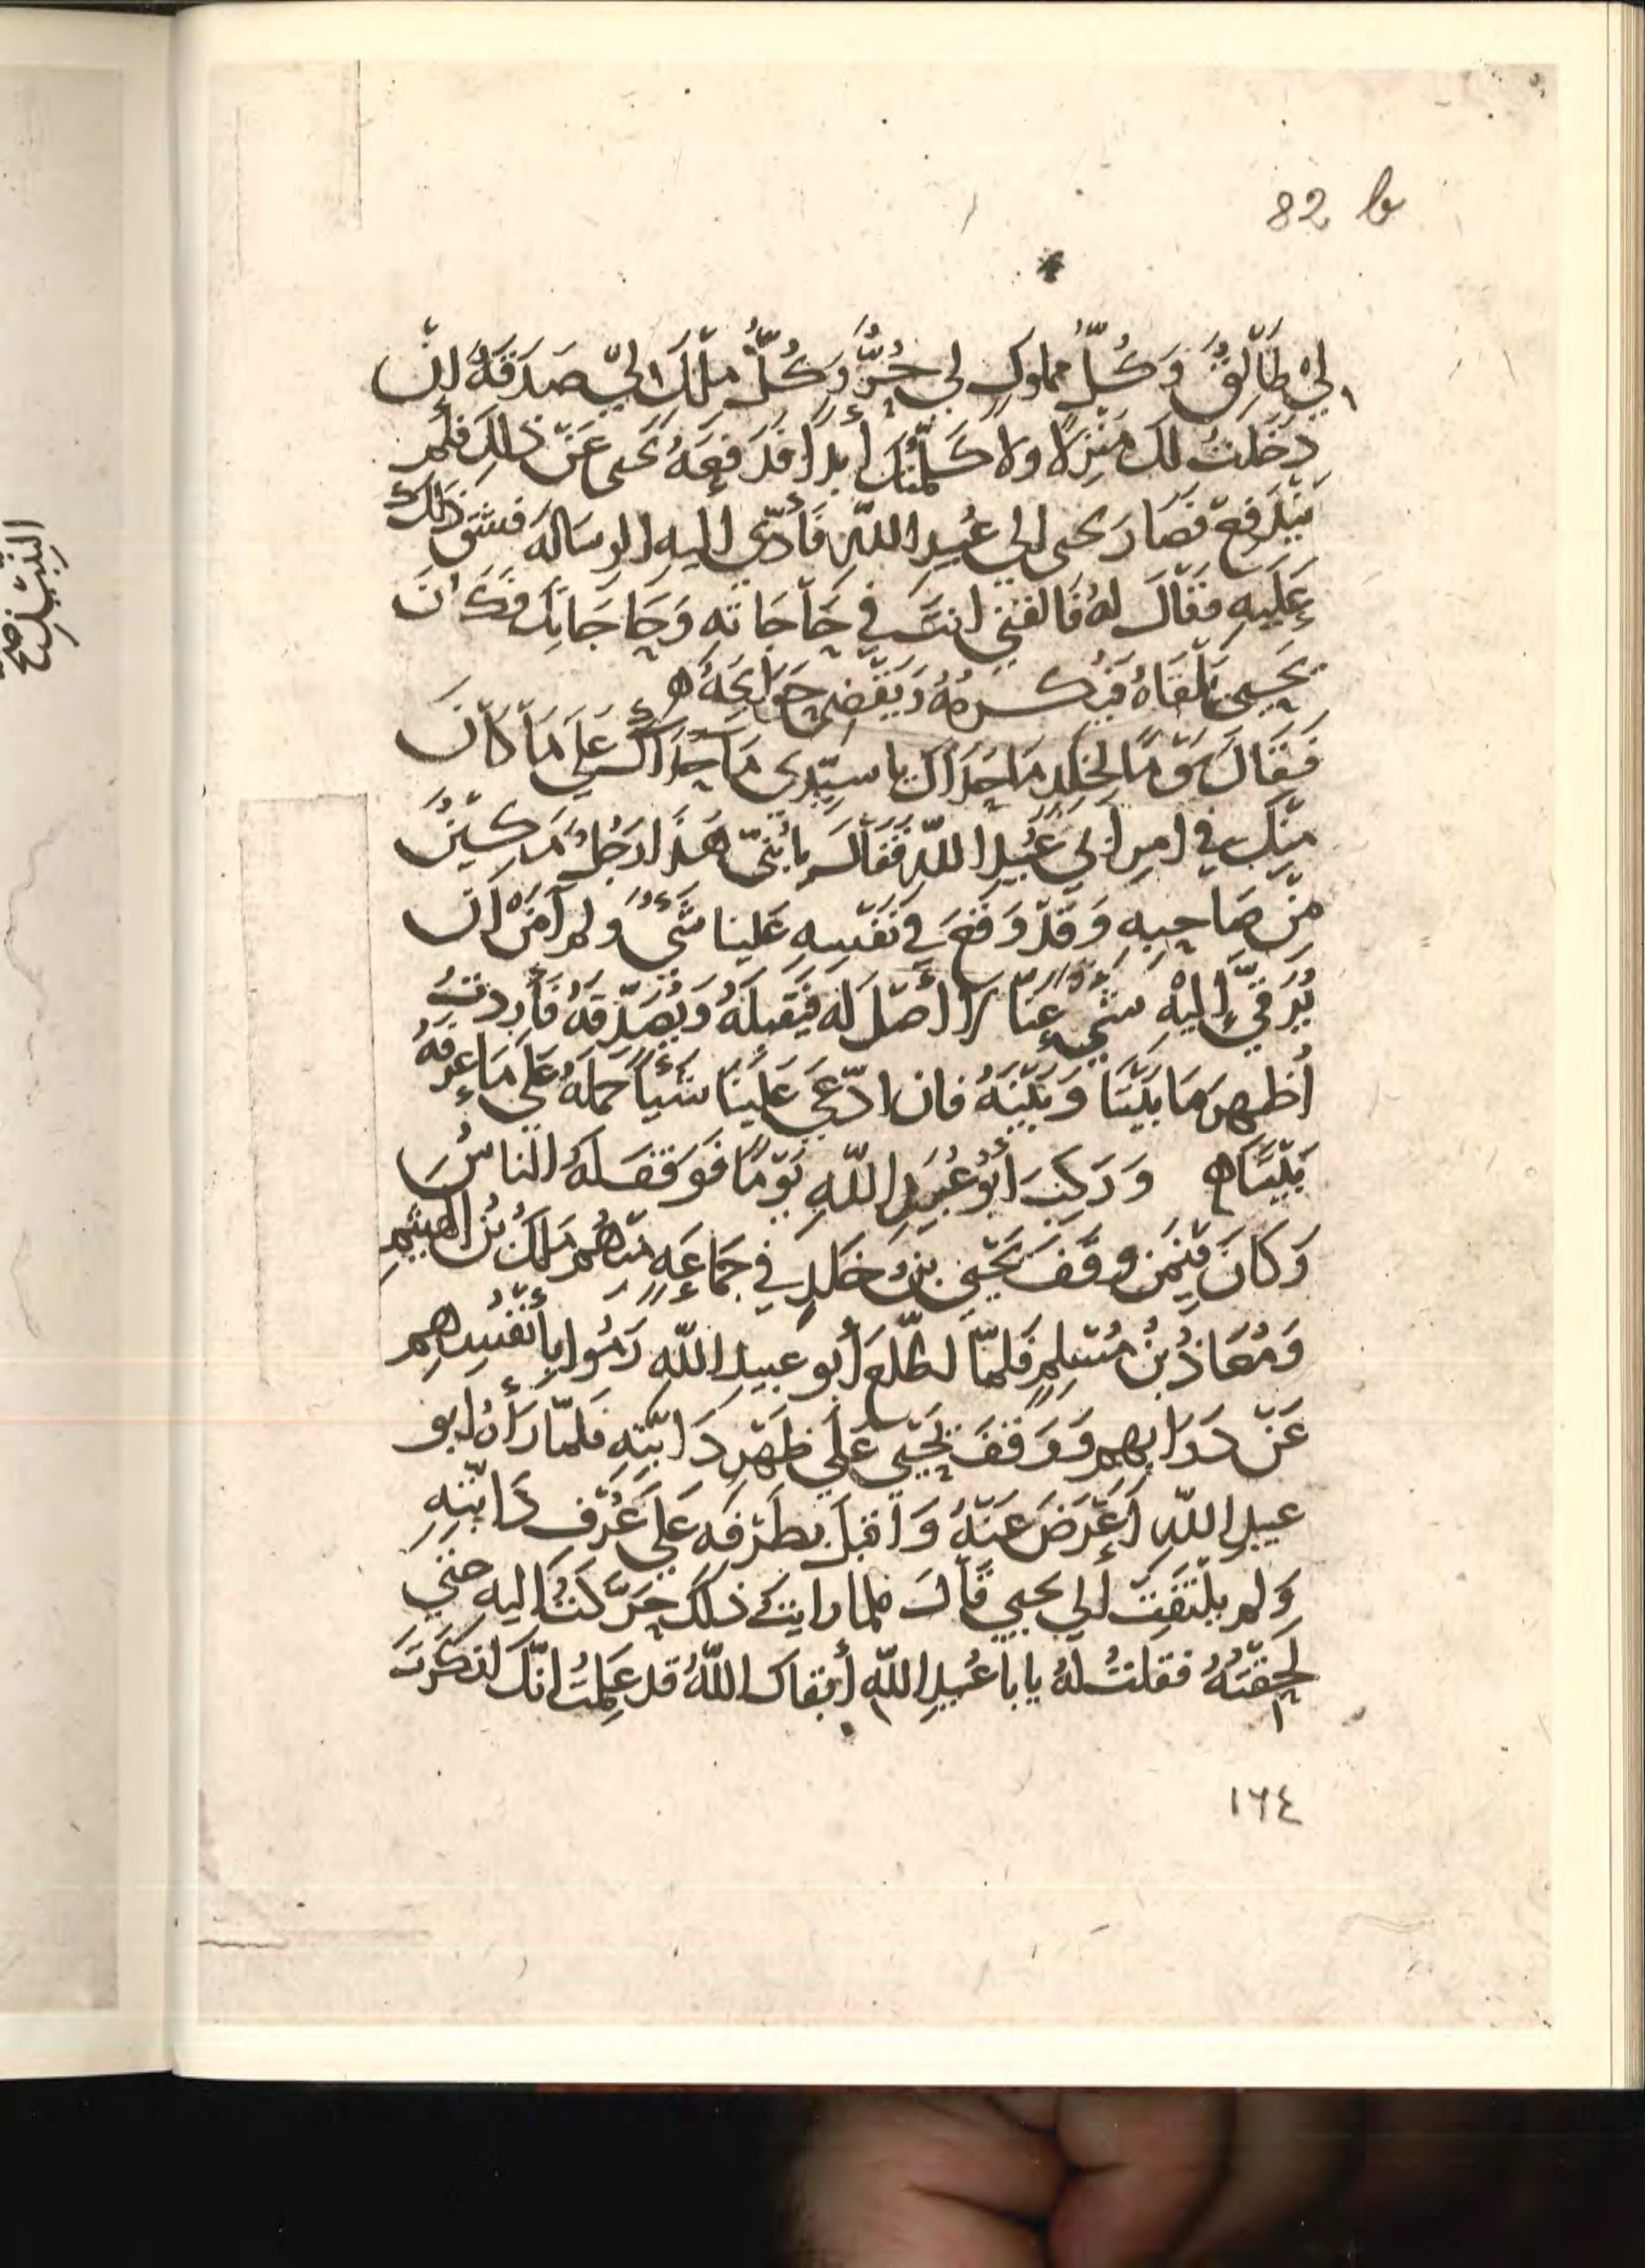 82 b
لِيْ طَالِقٌ وَكُلّ مملوكٍ لي حُرٌّ وَكُلُّ ملْكٍ لِيْ صَدَقَةٌ اِنْ
دَخَلتُ لكَ مَنْزِلًا ولا كَلّمْتُكَ أبدًا فدَفعَهُ يحيى عَنْ ذلِكَ فلَمْ
يَنْدَفِعْ فصَارَ يحيى الى عُبيدِ اللّهِ فَأَدّى اليهِ الرسَالَة فشقّ ذلك
عَلَيهِ فقَالَ لهُ فَالقني انتَ في حَاجَاته وَحَاجَاتِكَ فكَانَ
يَحيى يَلْقَاهُ فيُكرمُهُ وَيَقْضي حَوَائجَهُ ه
فَقَالَ يَوْمًا لخلدٍ مَا حَدَاكَ يا سيّدي مَا حَدَاكَ عَلَى مَا كَانَ
مِنْكَ في امرِ أبي عُبَيدِ اللّهِ فَقَالَ يا بُنَيّ هَذَا رَجُلٌ مَكِيْنٌ
مِنْ صَاحِبِهِ وَقَدْ وَقَعَ في نَفْسِهِ عَلينا شَيْءٌ ولم آمَنْ ان
يُرَقّيَ إليْهِ شَيْءٍ عنّا لا أصْلَ لَه فيَقبلَهُ وَيُصَدّقهُ فَأَردْتُ
أُظهِرَ مَا بَيْنَنا وَبَيْنَهُ فان ادّعَى عَلَينَا شَيْئًا حملَهُ عَلَى مَا عرفهُ
بَيْنَنَا ه وَرَكِبَ أبُو عُبَيدِ اللّهِ يَوْمًا فَوَقفَ لَهُ الناسُ
وَكَانَ فِيْمَنْ وقَفَ يَحْيَى بنُ خلدٍ في جَمَاعَةٍ مِنهُم مَلكُ بْنُ الهيثمِ
وَمُعَاذُ بْنُ مُسْلِمٍ فَلمّا اطّلَعَ أبو عبيدِ اللّهِ رَمَوا بِأَنْفُسِهِم
عَنْ دَوَابّهِم وَوَقَفَ يَحْيَى عَلَى ظَهْرِ دَابّتِهِ فلمّا رَأَهُ ابو
عبيدِ اللّهِ أَعْرَضَ عَنْهُ وَأقبلَ بطَرْفِهِ عَلَى عُرْفِ دَابّتِهِ
وَلم يلْتفِتْ إلى يحيى قَالَ فلما رايت ذلك حَرّكتُ اليه حتى
لَحِقْتُهُ فقلتُ لهُ يا با عُبيدِ اللّهِ أبقاكَ اللّهُ قد عَلِمتُ انّكَ انكَرتَ
١٦٤